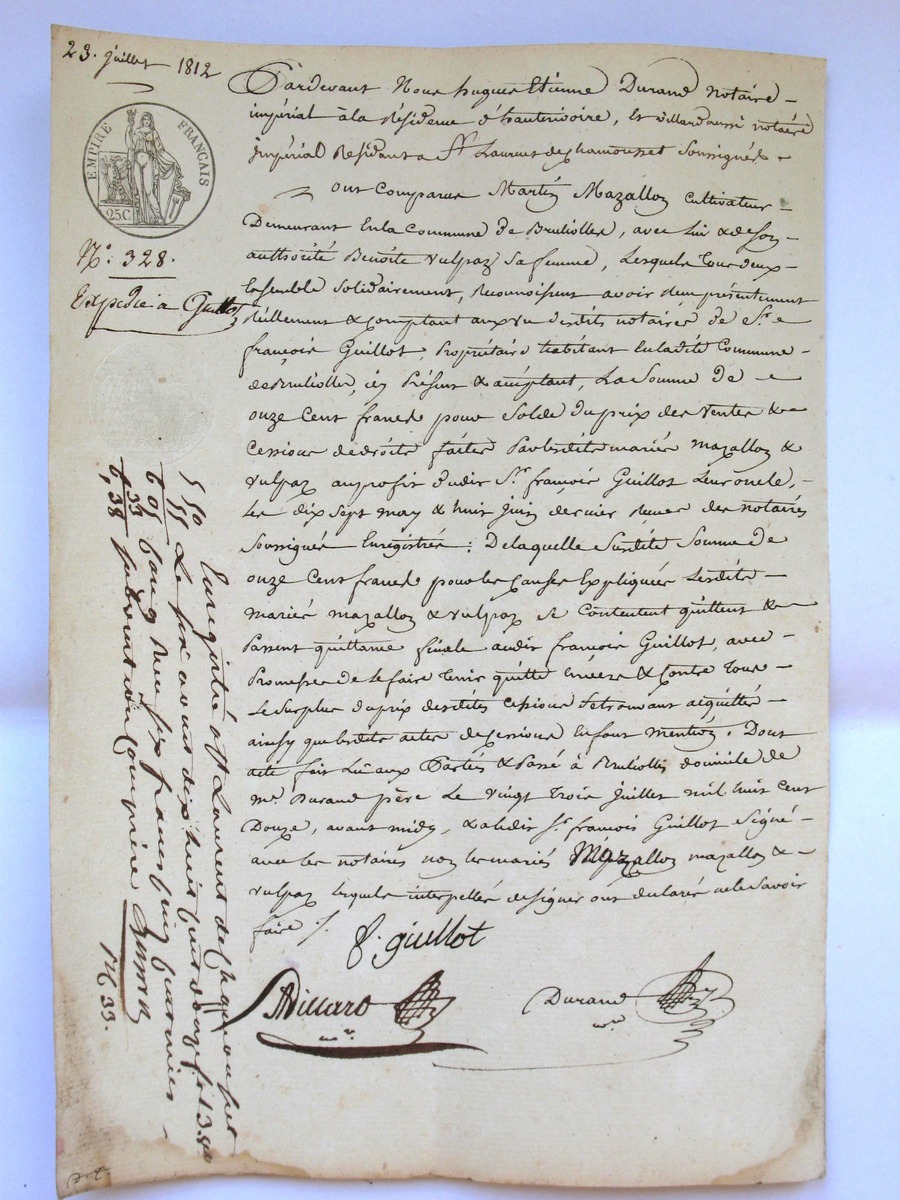 23. juillet 1812
EMPIRE FRANÇAIS
25 C.
N.º 328.
Expédié à Guillot
Pardevant Nous hugues Etienne Durand notaire
impérial à la Résidence d'hauterivoire, Et villard aussi notaire
Impérial Residant a St. Laurent de Chamousset Soussignés
ont Comparus Martin Mazallon Cultivateur
Demeurant En la Commune de Brullioles, avec lui & de son
authorité Benoite vulpaz sa femme, Lesquels tour deux
Ensemble Solidairement, Reconnoissent avoir Reçu présentement
Réellement & comptant aux vu desdits notaires de Sr.
françois Guillot, Propriétaire habitant En ladite Commune
de Brulliolle, icy Présent & acceptant, La Somme de
onze Cent francs pour Solde du prix des ventes &
Cessions de droits faites Par lesdits mariés mazallon &
vulpaz au profit dudit Sr. françois Guillot Leur oncle,
les dix Sept may & huit juin dernier Reçues des notaires
Soussignés Enregistrés: De laquelle Susdite Somme de
onze Cent francs pour les Causes Expliquées Lesdits
mariés mazallon & vulpaz se Contentent quittent &
Passent quittance finale audit françois Guillot, avec
Promesse de le faire tenir quitte Envers & Contre tous
Le Surplus du prix desdites Cessions Se trouvant aiquitté
ainsy que lesdits actes de Cessions En font mention. Dont
acte fait Lû aux Parties & Passé à Brullioles domicile de
me. Durand père Le vingt Trois Juillet mil huit Cent
Douze, avant midy, & a ledit Sr. françois Guillot Signé
avec les notaires non les mariés mazallon &
vulpaz lesquels interpellés de signer ont declaré ne le Savoir
faire /.
f. guillot
Villard
Durand
nre
Enregistré à St Laurent de Chamousset
Le six aout dix huit cent douze
Reçu six francs cinq centimes
subvention Comprise
5 50
55
6 05
33
6, 38